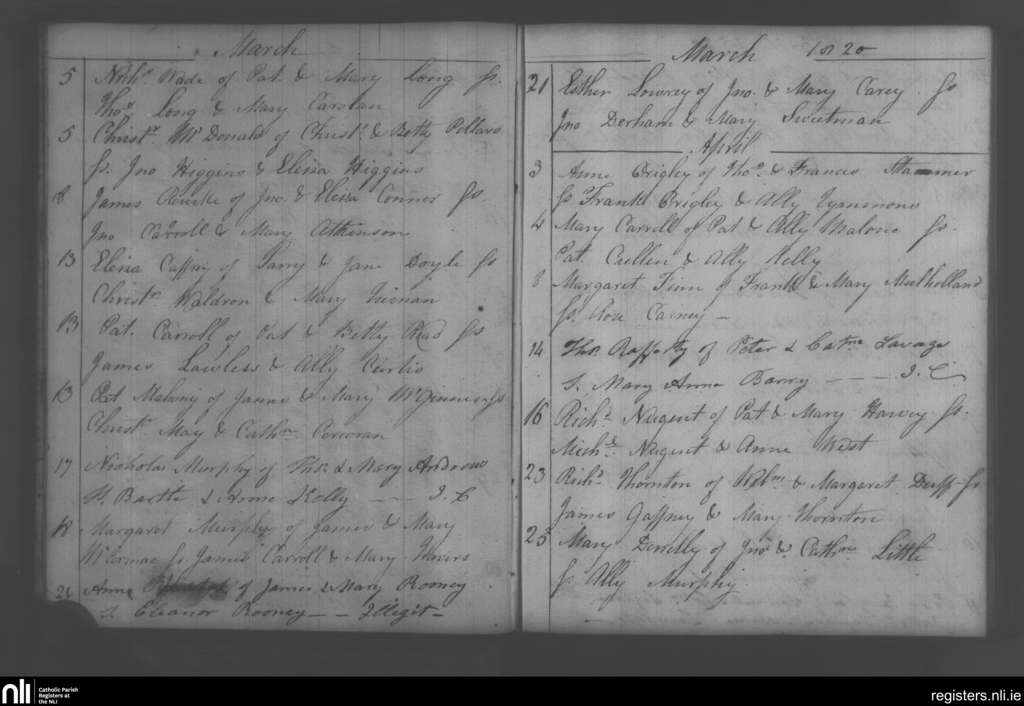 March
5 Richd. Wade of Pat. & Mary Long Ss.
Thos. Long & Mary Carolan
5 Christr. McDonald of Christr. & Betty Pollard
Ss. Jno Higgins & Elisia Higgins
8 James Rourke of Jno & Elisia Connor Ss
Jno Carroll & Mary Atkinson
13 Elisia Caffrey of Larry & Jane Doyle Ss
Christr. Waldron & Mary
13 Pat. Carroll of Pat & Betty Read Ss
James Lawless & Ally Curtis
13 Pat Malony of James & Mary McGinnis Ss
Christr. May & Cathne. Corcoran
17 Nicholas Murphy of Thos. & Mary Andrews
S. Bartle & Anne Kelly — J. C
18 Margaret Murphy of James & Mary
McCormac Ss James Carroll & Mary
21 Anne of James & Mary Rooney
S. Eleanor Rooney — Illegit —
March 1820
21 Esther Lowrey of Jno. & Mary Carey. Ss
Jno Derham & Mary Sweetman
April
3 Anne Grigley of Thos. & Frances
Ss Frank Grigley & Ally
4 Mary Carroll of Pat & Ally Malone Ss.
Pat. Cullen & Ally Kelly
8 Margaret of Frank & Mary Mulholland
Ss. Rose Carney —
14 Thos. Rafferty of Peter & Cathne Savage
S. Mary Anne Barry — J. C
16 Richd. Nugent of Pat & Mary Harvey Ss.
Michl. Nugent & Anne West
23 Richd. Thornton of Wilm. & Margaret Duff Ss
James Gaffney & Mary Thornton
25 Mary Donelly of Jno & Cathne Little
Ss Ally Murphy
nli Catholic Parish
Registers at
the NLI
registers.nli.ie